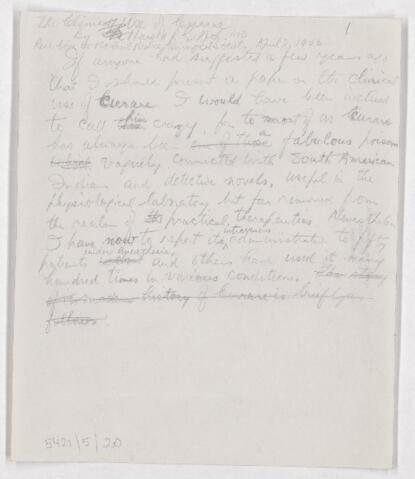 The Clinical Use of Curare
By Harold R.
1
If anyone had suggested a few years ago
that I should present a paper on the clinical
use of Curare I would have been inclined
to call him crazy, for to most of us Curare
has always been one of those a fabulous poison
vaguely connected with South American
Indians and detective novels, useful in the
physiological laboratory but far removed from
the realm of practical therapeutics. Nevertheless
I have now to report its intravenous administration to fifty
patients under anaesthesia and others have used it many
hundred times in various conditions. The story
history of Curare is briefly as
follows
5421/5/20